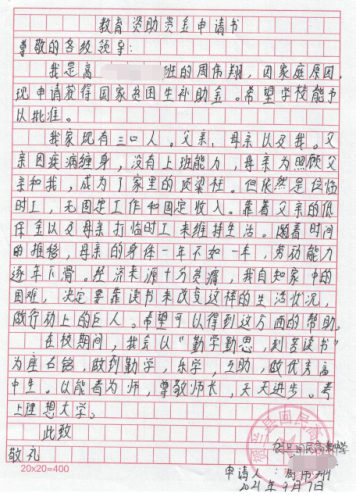 教育资助资金申请书
尊敬的各级领导:
我是高 班的周伟翔,因家庭原因,
现申请获得国家贫困生补助金。希望学校能予
以批准。
我家现有三口人。父亲、母亲以及我。父
亲因疾病缠身,没有上班能力,母亲为照顾父
亲和我,成为了家里的顶梁柱。但依然是位临
时工,无固定工作和固定收入。靠着父亲的低
保金以及母亲打临时工来维持生活。随着时间
的推移,母亲的身体一年不如一年,劳动能力
逐年下滑。经济来源十分贫瘠,我自知家中的
困难,决定要靠读书来改变这样的生活状况,
做行动上的巨人。希望可以得到这方面的帮助。
在校期间,我会以“勤学勤思,刻苦读书”
为座右铭,做到勤学,乐学,互助,做优秀高
中生。以能者为师,尊敬师长,天天进步。考
上理想大学。
此致
敬礼
20×20=400
申请人:周伟翔
2021年9月7日